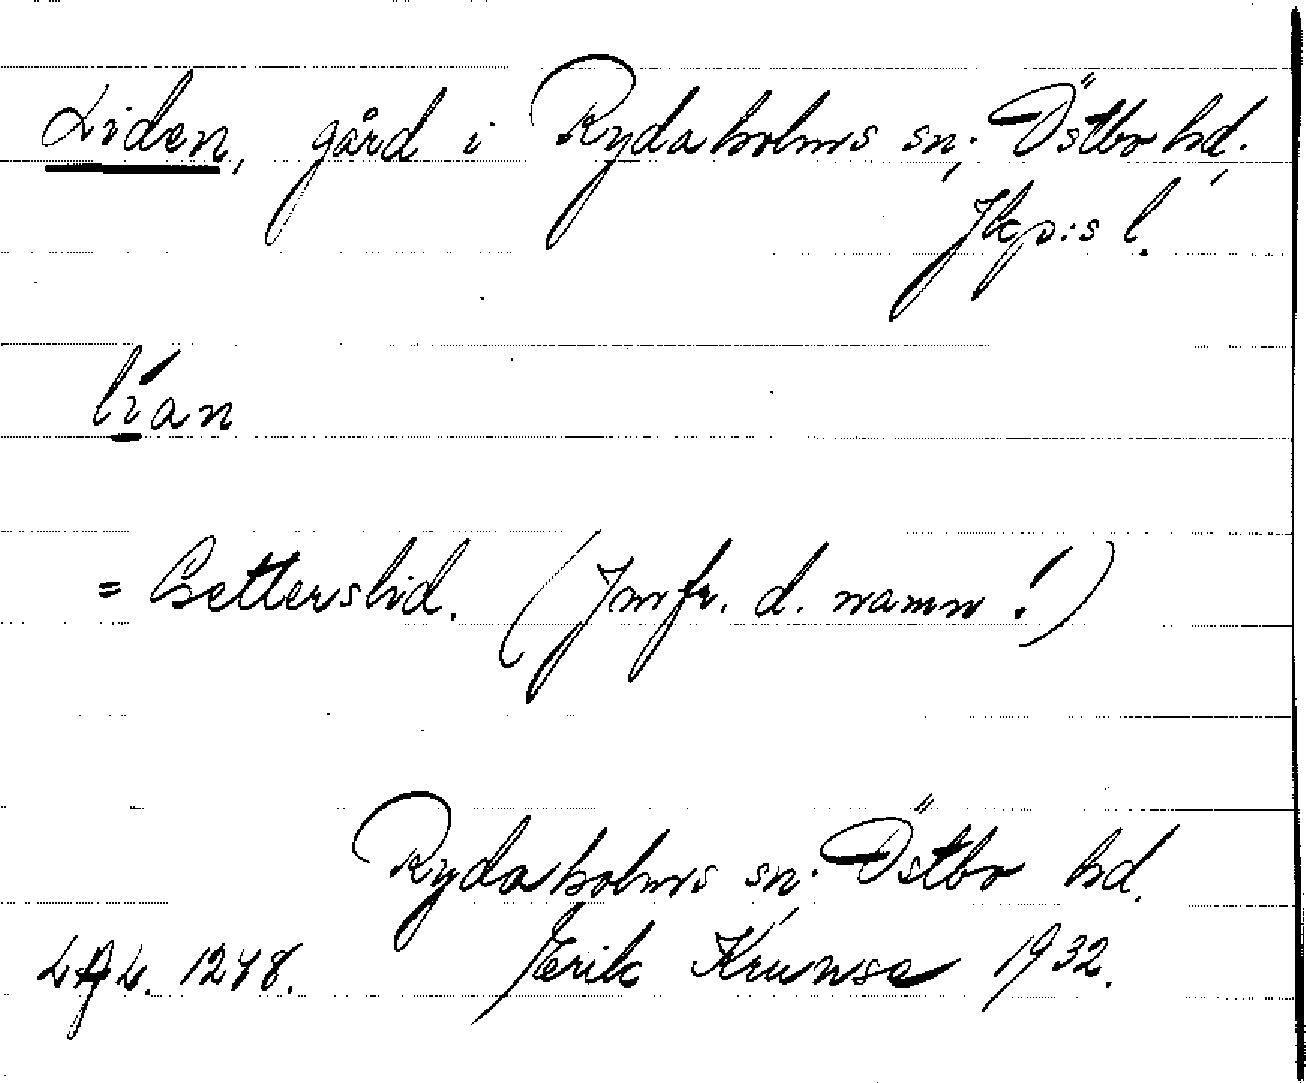 Liden, gård i Rydaholms sn, Östbo hd,
Jkp:s l.
lían
= Getterslid. (Jmfr. d. namn!)
Rydaholms sn. Östbo hd.
1248. Erik 1932.